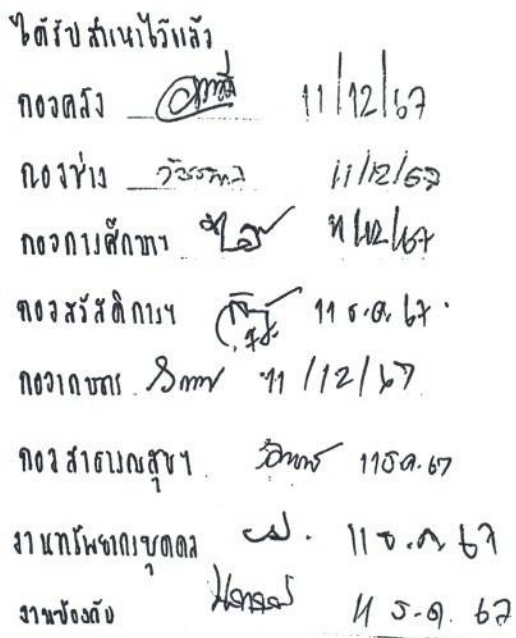 ได้รับสำเนาไว้แล้ว
กองคลัง 11/12/67
กองช่าง 11/12/67
กองการศึกษาฯ 11/12/67
กองสวัสดิการฯ 11 ธ.ค. 67
กองเกษตร 11/12/67
กองสาธารณสุขฯ 11 ธ.ค. 67
งานทรัพยากรบุคคล 11 ธ.ค. 67
งานป้องกัน 11 ธ.ค. 67